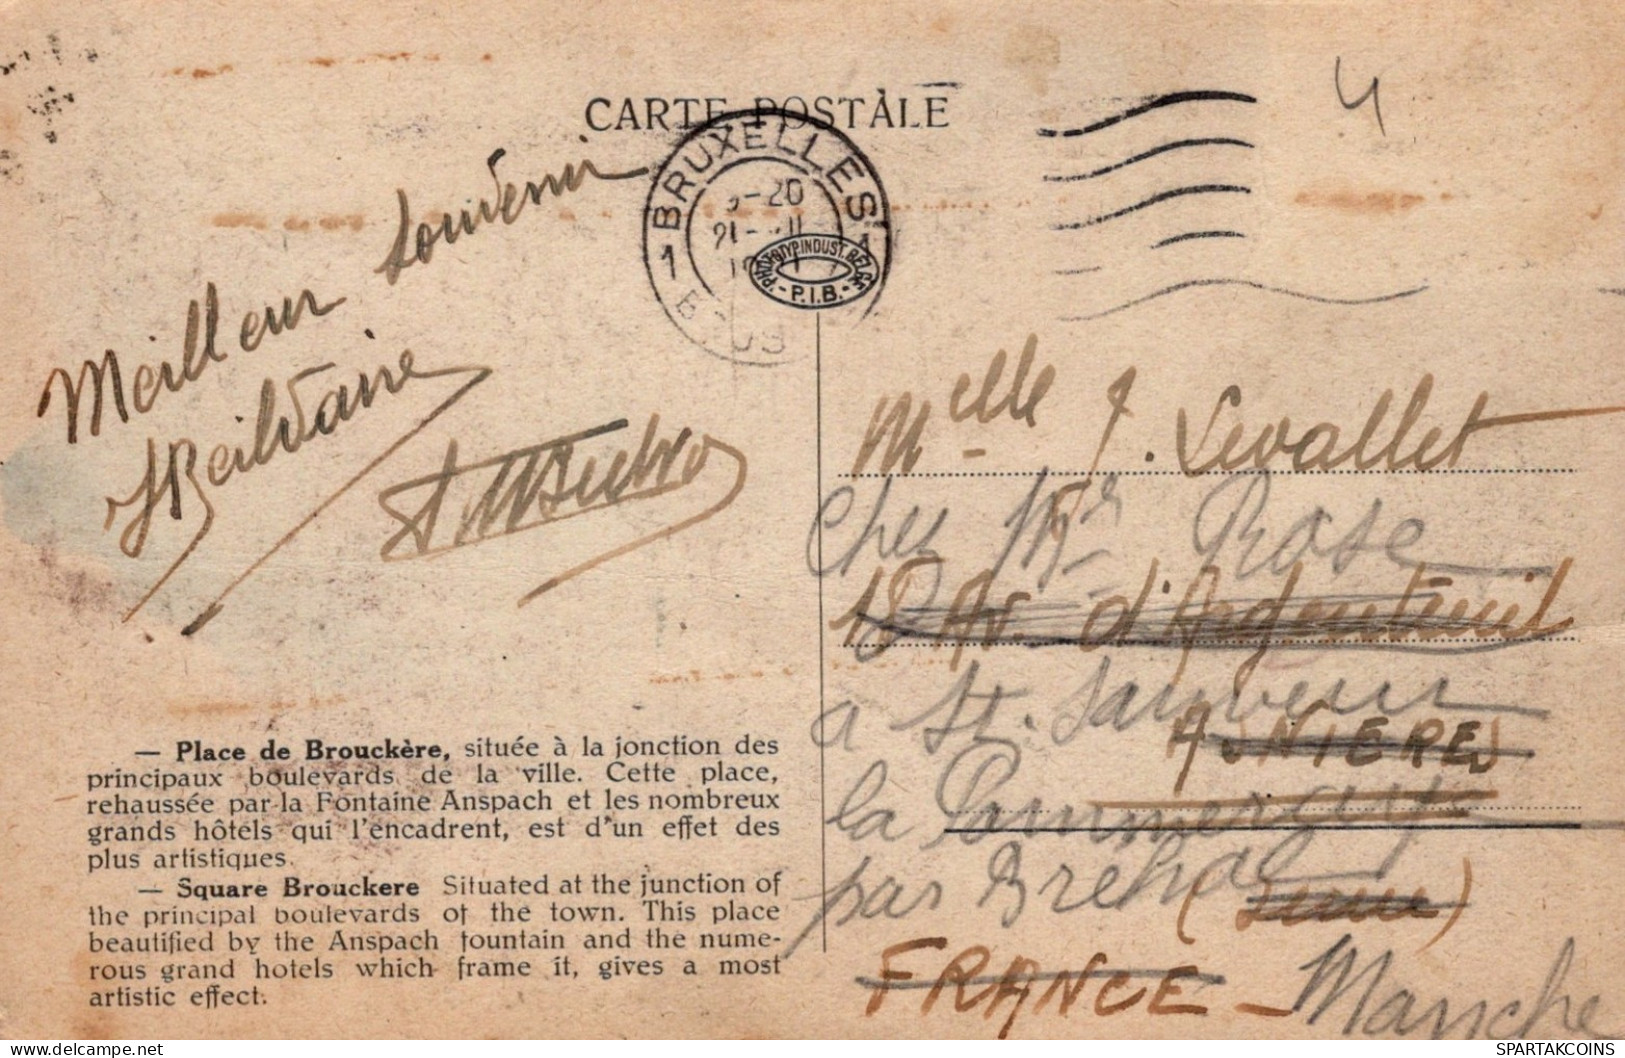 CARTE POSTALE
BRUXELLES
1 1
-20
21-
PHOTOTYP. INDUST. BELGE
- P.I.B. -
4
Meilleur Souvenir
Melle J. Levallet
chez Mr Rose
18 Av. d'Argenteuil
a St. Sauveur
ASNIERES
la Pommeraye
par Bréhal
(Seine)
FRANCE - Manche
— Place de Brouckère, située à la jonction des
principaux boulevards de la ville. Cette place,
rehaussée par la Fontaine Anspach et les nombreux
grands hôtels qui l'encadrent, est d'un effet des
plus artistiques.
— Square Brouckere Situated at the junction of
the principal boulevards of the town. This place
beautified by the Anspach fountain and the nume-
rous grand hotels which frame it, gives a most
artistic effect.
SPARTAKCOINS